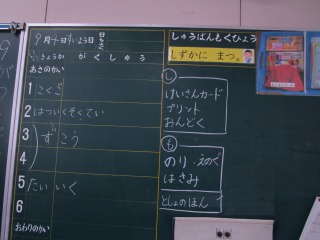 9月4日すいよう日
がくしゅう
あさのかい
1 こくご
2 はついくそくてい
3 ずこう
4
5 たいいく
6
おわりのかい
しゅうばんもくひょう
しずかに まつ。
し
けいさんカード
プリント
おんどく
も
のり えのぐ
はさみ
としょのほん